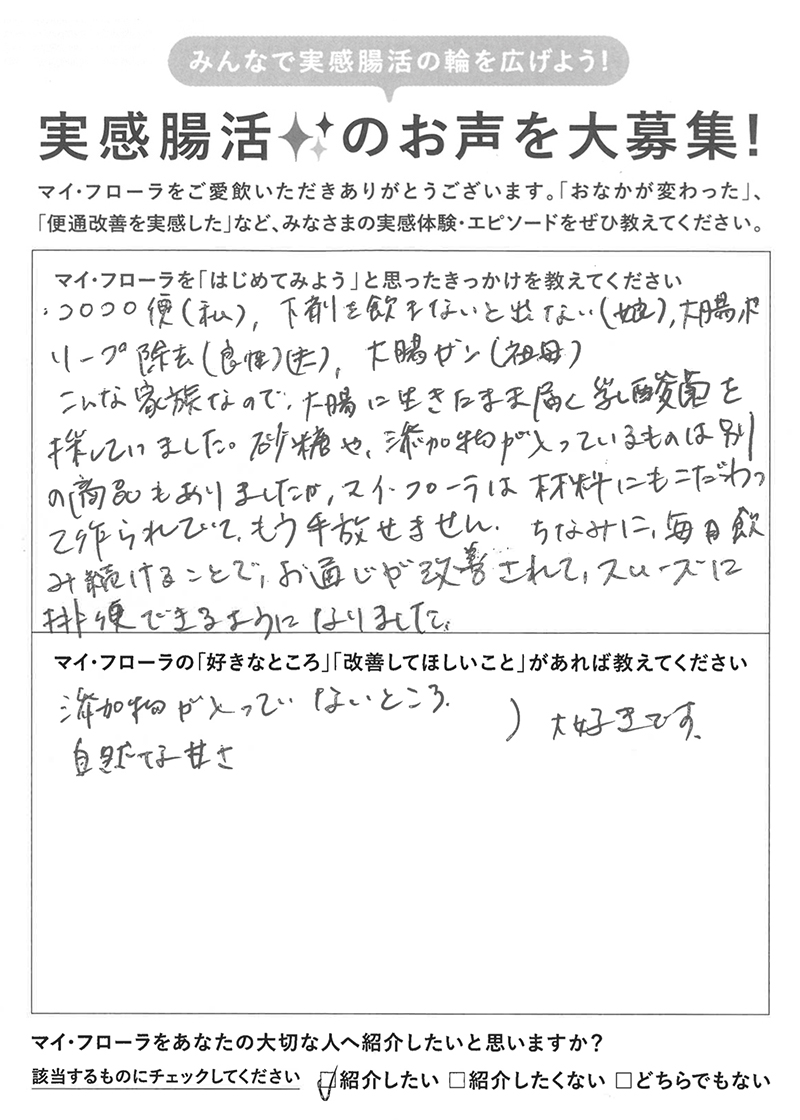 みんなで実感腸活の輪を広げよう!
実感腸活のお声を大募集!
マイ・フローラをご愛飲いただきありがとうございます。「おなかが変わった」、
「便通改善を実感した」など、みなさまの実感体験・エピソードをぜひ教えてください。
マイ・フローラを「はじめてみよう」と思ったきっかけを教えてください
・コロコロ便(私)、下剤を飲まないと出ない(娘)、大腸ポ
リープ除去(良性)(夫)、大腸ガン(祖母)
こんな家族なので、大腸に生きたまま届く乳酸菌を
探していました。砂糖や、添加物が入っているものは別
の商品もありましたが、マイ・フローラは材料にもこだわっ
て作られていて、もう手放せません。ちなみに、毎日飲
み続けることで、お通じが改善されて、スムーズに
排便できるようになりました。
マイ・フローラの「好きなところ」「改善してほしいこと」があれば教えてください
添加物が入っていないところ
自然な甘さ
) 大好きです。
マイ・フローラをあなたの大切な人へ紹介したいと思いますか?
該当するものにチェックしてください ☑紹介したい □紹介したくない □どちらでもない